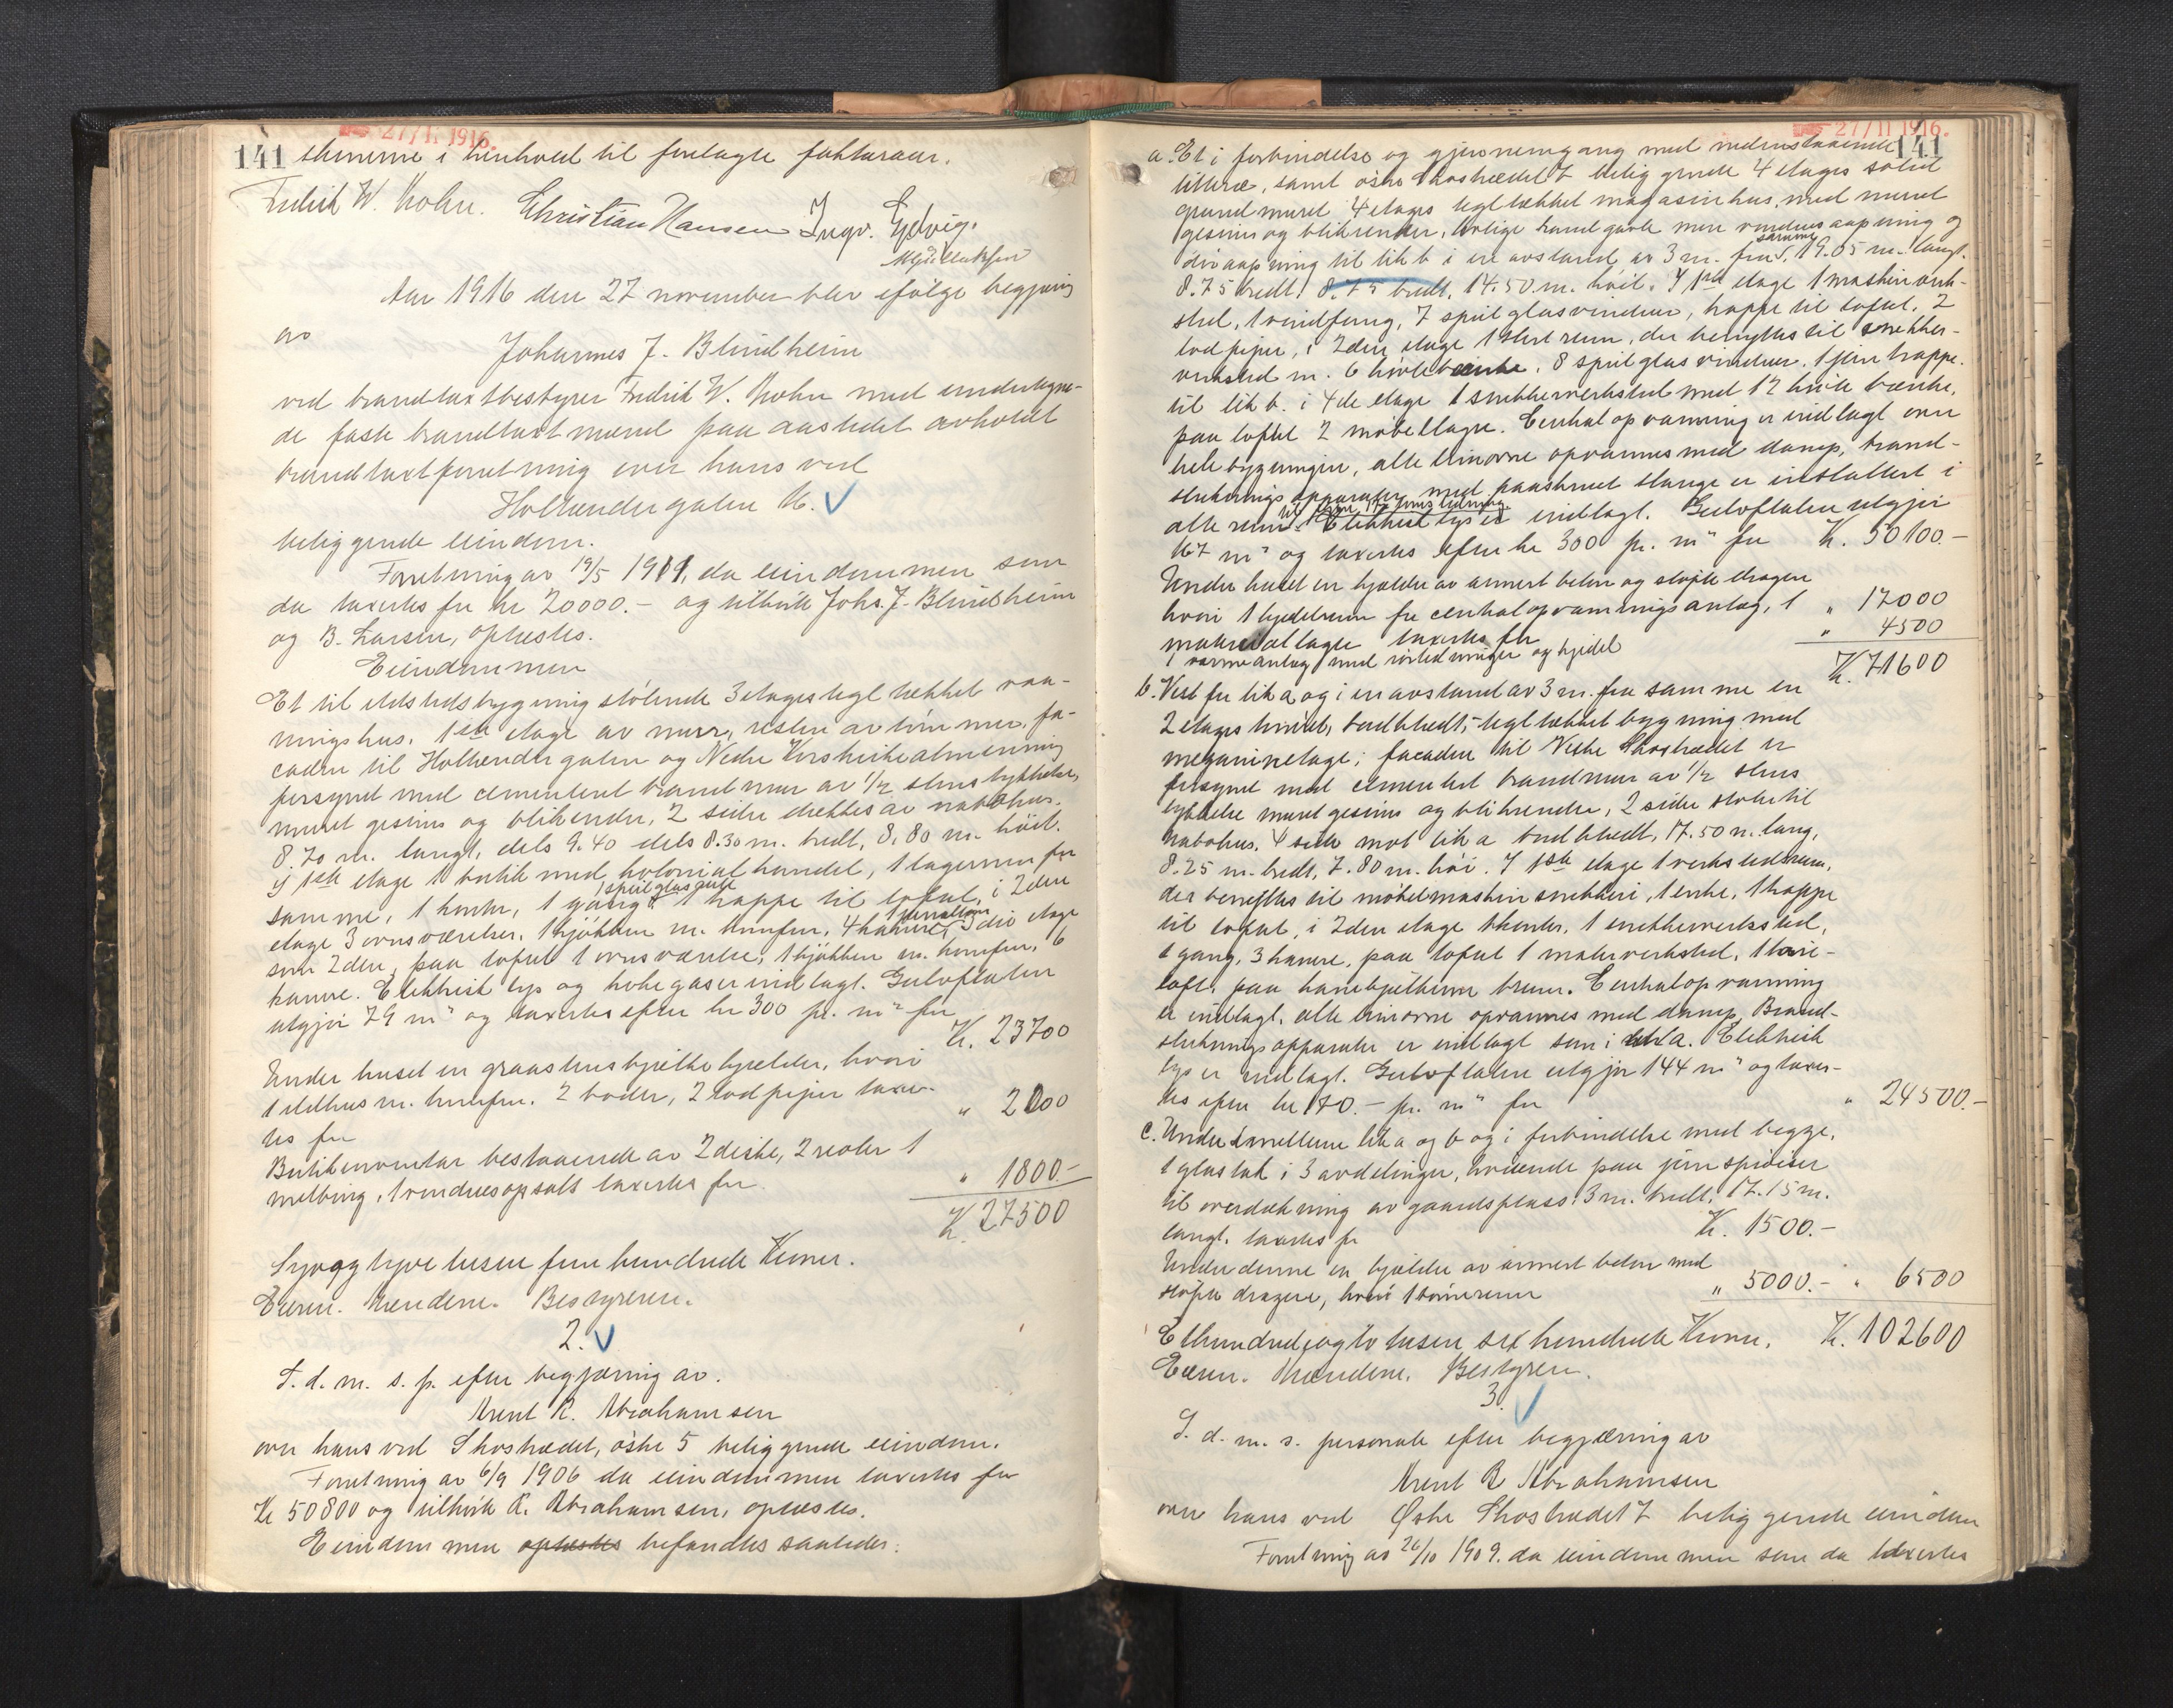 27/11 1916.
141 skinerne i henhold til fremlagte fakturaer.
Fredrik W. Kohn. Christian Hansen Ingv. Gjelvig.
Aar 1916 den 27 november blev ifølge begjæring
av
Johannes J. Blindheim
ved brandtakstbestyrer Fredrik W. Kohn med undertegne-
de faste brandtakstmænd paa aastedet avholdt
brandtakstforretning over hans ved
Hollendergaten 16.
beliggende eiendom.
Forretning av 19/5 1911, da eiendommen som
da taxertes for kr 20000.- og tilhørte Johs. J. Blindheim
og B. Larsen, oplæstes.
Eiendommen
Et til ildstedsbygning stötende 3 etages tegltækket vaa-
ningshus. 1ste etage av mur, resten av tömmer, fa-
caden til Hollendergaten og Nedre Korskirkealmenning
forsynet med cementert brandmur av 1/2 stens tykkelse,
muret gesims og blikrender, 2 sider dækkes av nabohus.
8.70 m. langt, dels 9.40 dels 8.30 m. bredt, 8,80 m. höit.
I 1ste etage 1 butik med kolonialhandel, 1 lagerrum for
samme, 1 kontor, 1 gang, 1 speilglasrute 1 trappe til loftet, i 2den
etage 3 ovnsværelser, 1 kjökken m. komfur, 4 kamre, 3die etage
som 2den, paa loftet 1 ovnsværelse, 1 kjökken m. komfur, 6
kamre. Elektrisk lys og kokegas er indlagt. Gulvflaten
utgjör 79 m² og taxertes efter kr 300 pr. m² for K. 23700
Under huset en graastenskjelderkjelder, hvori
1 ildhus m. komfur. 2 boder, 2 lodpiper taxer-
tes for " 2000
Butikinventar bestaaende av 2 diske, 2 reoler 1
melbing, 1 vinduesopsats taxertes for " 1800.-
K. 27500
Syvogtyve tusen fem hundrede Kroner.
Eieren. Mændene. Bestyreren.
2.
S. d. m. s. p. efter begjæring av.
Arent R. Abrahamsen
over hans ved Skostrædet, östre 5 beliggende eiendom.
Forretning av 6/9 1906 da eiendommen taxertes for
Kr 50800 og tilhörte R. Abrahamsen, oplæstes.
Eiendommen oplæstes befandtes saaledes:
27/11 1916.
141
a. Et i forbindelse og gjennemgang med nedenstaaende
litteræ, samt östre Skostrædet 7 beliggende 4 etages solid
grundmuret 4 etages tegltækket magasinhus, med muret
gesims og blikrender, brandgavle med vinduesaapning og
döraapning til lit b i en avstand av 3 m. fra samme, 19.05 m. langt.
8.75 bredt, 8.75 bredt, 14.50 m. höit. I 1ste etage 1 maskinverk-
sted, 1 vindfang, 7 speilglasvinduer, trappe til loftet, 2
lodpiper, i 2den etage 1 stort rum, der benyttes til snekker-
verksted m. 6 hövlebænke, 8 speilglasvinduer, 1 jerntrappe.
til lit b. i 4de etage 1 snekkerverksted med 12 hövlebænke,
paa loftet 2 möbellagre. Centralopvarming er indlagt over
hele bygningen, alle limovne opvarmes med damp, brand-
sluknings apparater med paaskruet slange er installert i
alle rum. Elektrisk lys er indlagt. Gulvflaten utgjör
167 m² og taxertes efter kr 300 pr. m² for K. 50100.-
Under huset en kjælder av armert beton og stöpte dragere
hvori 1 kjedelrum for centralopvarmingsanlæg, 1
materiallager taxertes for " 17000
1 varmeanlæg med rörledninger og kjedel " 4500
K. 71600
b. Vest for lit a og i en avstand av 3 m. fra samme en
2 etages tömret, bordklædt, tegltækket bygning med
mezaninetage; facaden til Vestre Skostrædet er
forsynet med cementert brandmur av 1/2 stens
tykkelse muret gesims og blikrender, 2 sider stöter til
nabohus, 4 side mot lit a bordklædt, 17.50 m. lang,
8.25 m. bredt, 7.80 m. höi. I 1ste etage 1 verkstedrum,
der benyttes til möbelmaskinsnekkeri, 1 entre, 1 trappe
til loftet, i 2den etage 1 kontor, 1 snekkerverksted,
1 gang, 3 kamre, paa loftet 1 malerverksted, 1 törre-
loft, paa hanebjelkerne 1 rum. Centralopvarming
er indlagt, alle limovne opvarmes med damp, Brand-
slukningsapparater er indlagt som i lit a. Elektrisk
lys er indlagt. Gulvflaten utgjör 144 m² og taxer-
tes efter kr 170.- pr. m² for " 24500.-
c. Under mellem lit a og b og i forbindelse med begge,
1 glastak i 3 avdelinger, hvilende paa jernspröiser
til overdækning av gaardsplass. 3 m. bredt, 17.15 m.
langt, taxertes for K. 1500.-
Under denne en kjælder av armert beton med
stöpte dragere, hvori 1 törrerum " 5000.- " 6500
Ethundredeogto tusen sex hundrede Kroner. K. 102600
Eieren. Mændene. Bestyreren.
3.
S. d. m. s. personale efter begjæring av
Arent R Abrahamsen
over hans ved Østre Skostrædet 7 beliggende eiendom
Forretning av 26/10 1909. da eiendommen som da taxertes